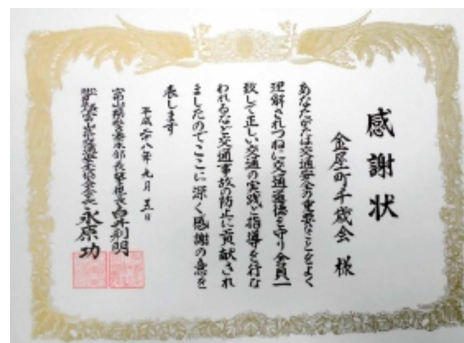 感謝状
金屋町千歳会 様
あなたがたは交通安全の重要なことをよく
理解されつねに交通道徳を守り会員一
致して正しい交通の実践と指導を行な
われるなど交通事故の防止に貢献され
ましたのでここに深く感謝の意を
表します
平成二八年九月五日
富山県警察本部長警視長 白井利明
富山県交通安全協会会長 永原功